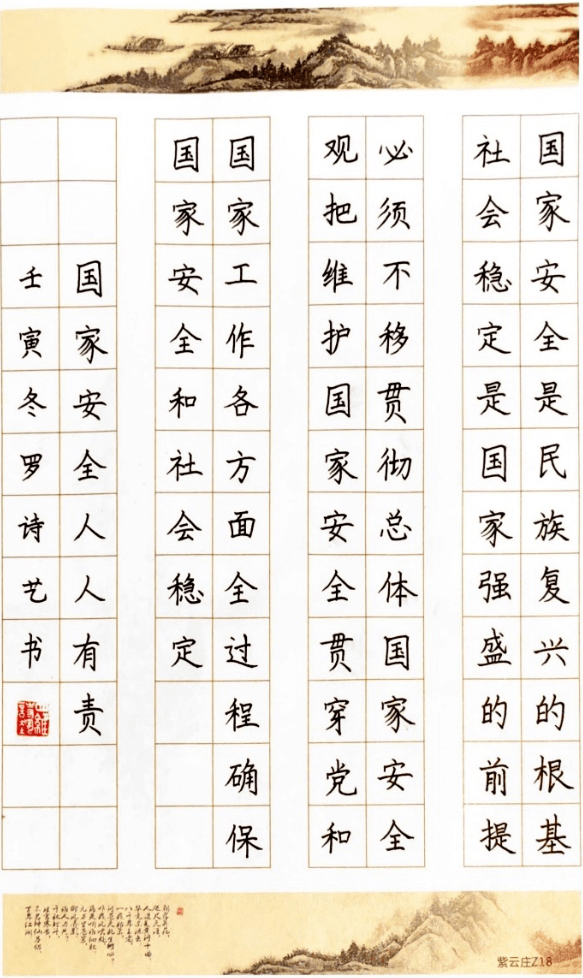 国家安全是民族复兴的根基
社会稳定是国家强盛的前提
必须不移贯彻总体国家安全
观把维护国家安全贯穿党和
国家工作各方面全过程确保
国家安全和社会稳定
国家安全人人有责
壬寅冬罗诗艺书
紫云庄Z18